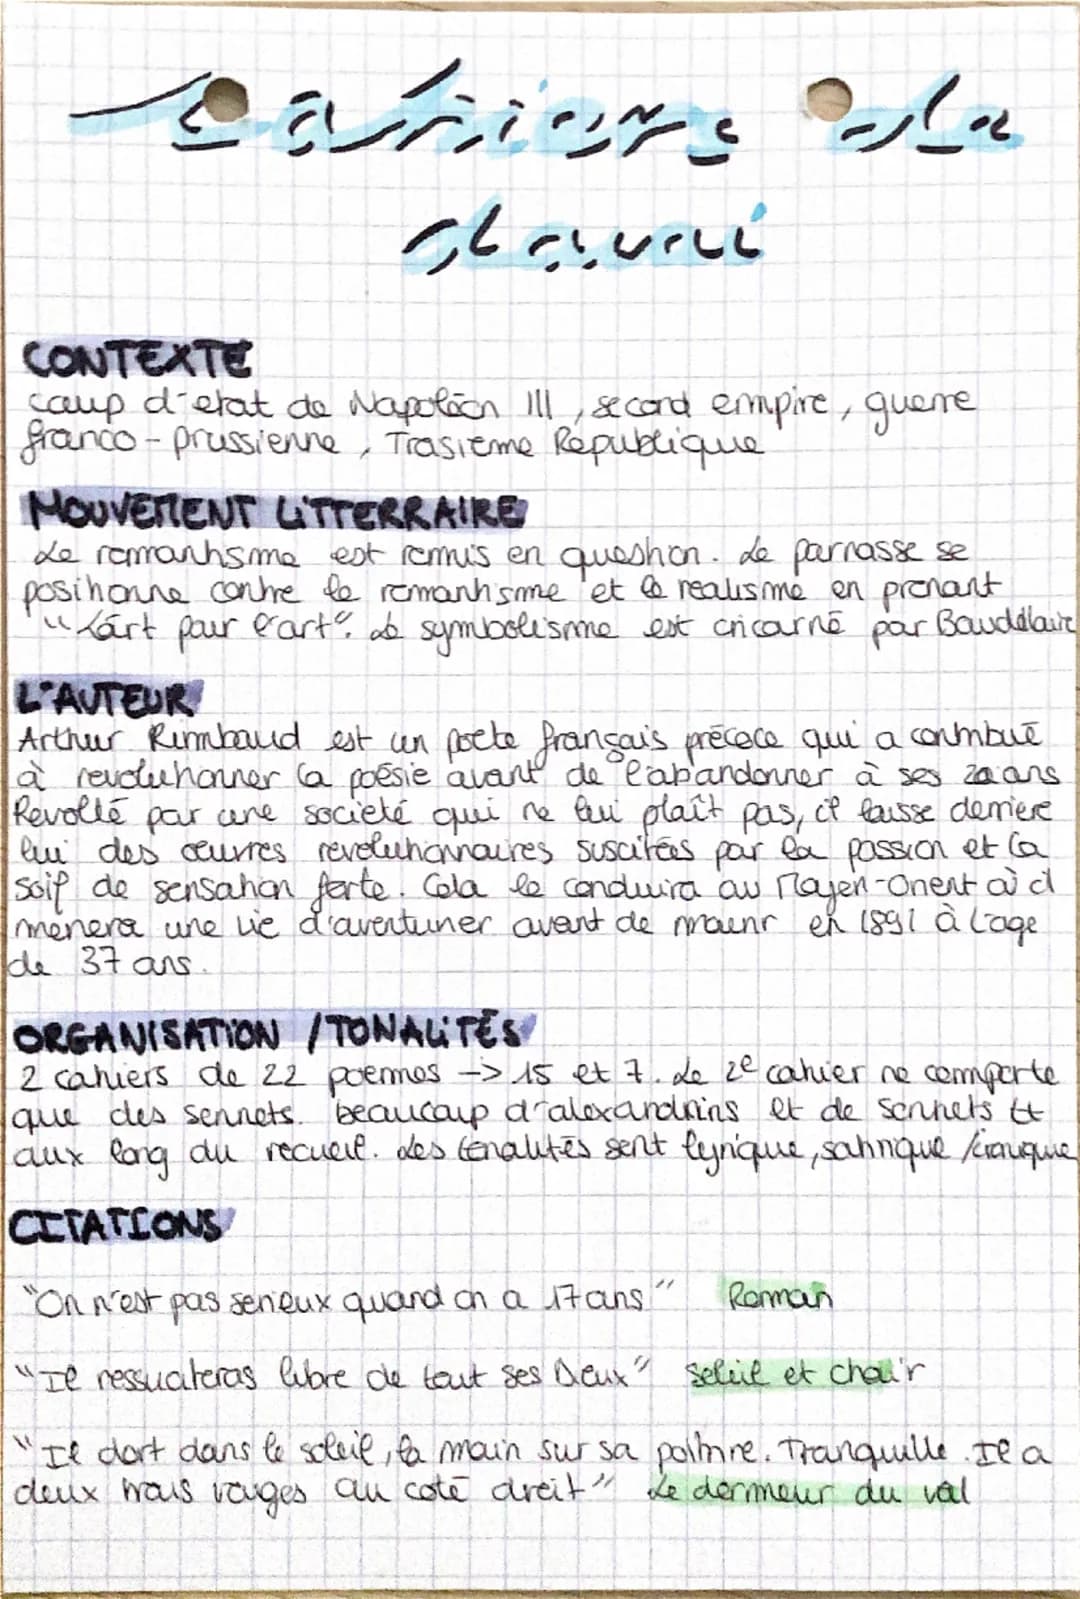 CONTEXTE
coup d'etat de Napoléon III, second empire, guerre
franco-prussienne, Troisième République
MOUVEMENT LITTERRAIRE
Le romantisme est remis en question. Le parnasse se
positionne contre le romantisme et le realisme en pronant
"L'art pour l'art". Le symbolisme est incarné par Baudelaire
L'AUTEUR
Arthur Rimbaud est un poete français précoce qui a contribué
à revolutionner la poésie avant de l'abandonner à ses 20 ans
Revolté par une societé qui ne lui plaît pas, il laisse derriere
lui des œuvres revolutionnaires suscitées par la passion et la
soif de sensation forte. Cela le conduira au Moyen-Orient où il
menera une vie d'aventurier avant de mourir en 1891 à l'age
de 37 ans.
ORGANISATION / TONALITÉS
2 cahiers de 22 poemes -> 15 et 7. Le 2e cahier ne comporte
que des sonnets. beaucoup d'alexandrins et de sonnets tt
aux long du recueil. Les tonalités sont lyrique, satirique / ironique
CITATIONS
"On n'est pas serieux quand on a 17 ans" Roman
"Il ressuciteras libre de tout ses Dieux" Soleil et chair
"Il dort dans le soleil, la main sur sa poitrine. Tranquille. Il a
deux trous rouges au coté droit" Le dormeur du val